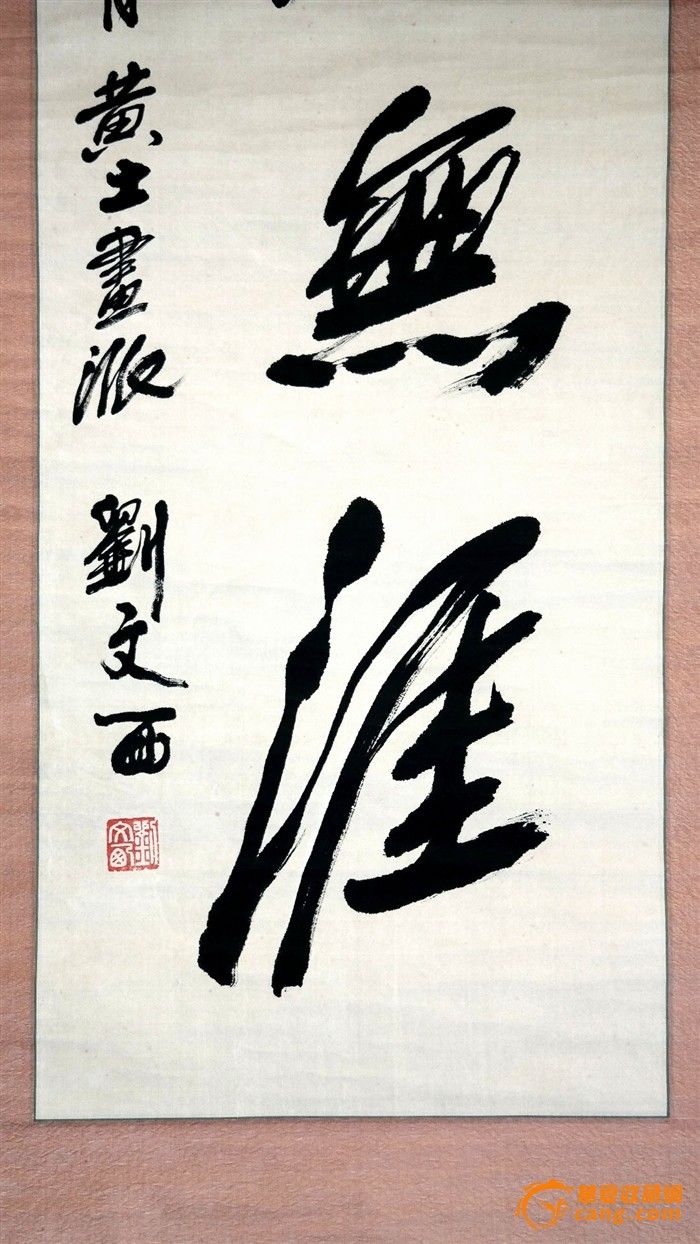 無涯
月 黄土畫派 劉文西
劉文西
華夏收藏網
cang.com